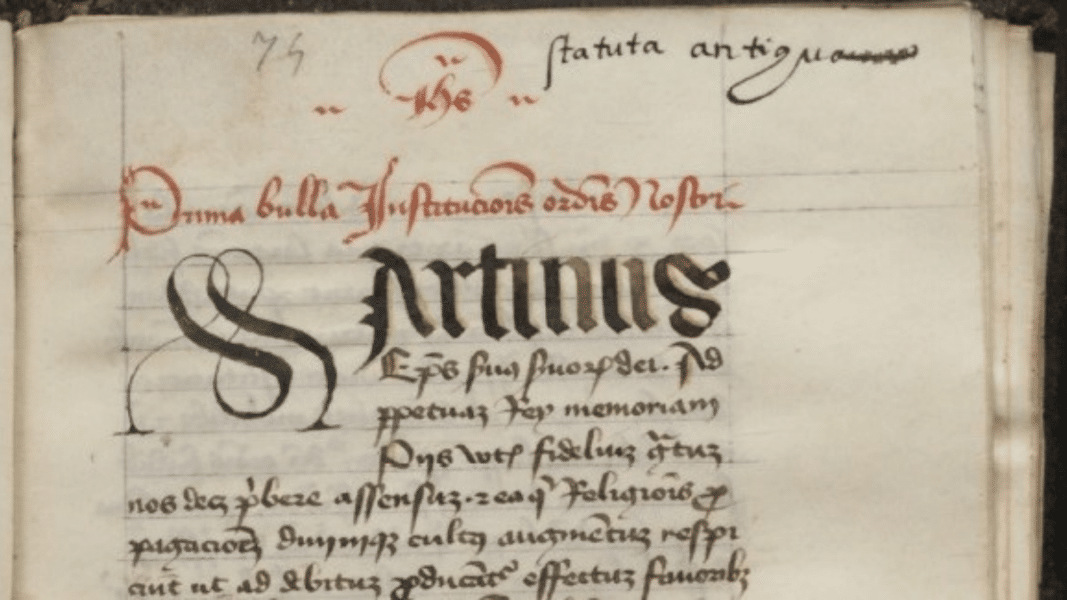 75
statuta antiqua
ihs
Prima bulla Institucionis ordinis Nostri
MArtinus
Eps suus suorum dei. Ad
ppetuaz Rey memoriam
Piis votis fideliuz gratuz
nos decz prebere assensuz. z ea que Religionis pro
pagacionez diuiniqz cultus augmentuz respi
ciut ut ad debituz producant effectuz fauoribz